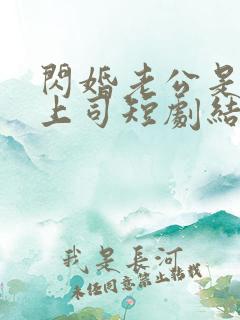 閃婚老公是
上司短劇結
我是長河
未經同意禁止轉載